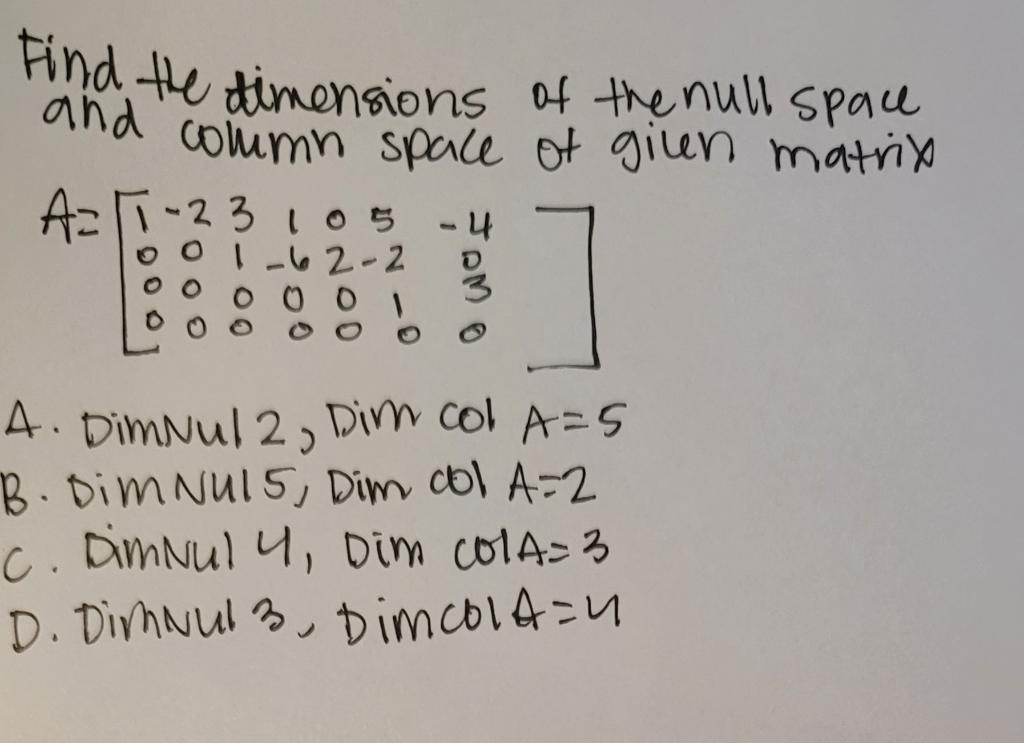 Find the dimensions of the null space
and column space of given matrix
A= [1 -2 3 1 0 5 -4]
0 0 1 -6 2 -2 0
0 0 0 0 0 1 3
0 0 0 0 0 0 0
A. DimNul 2, Dim col A=5
B. Dim Nul 5, Dim col A=2
C. DimNul 4, Dim colA=3
D. DimNul 3, DimcolA=4